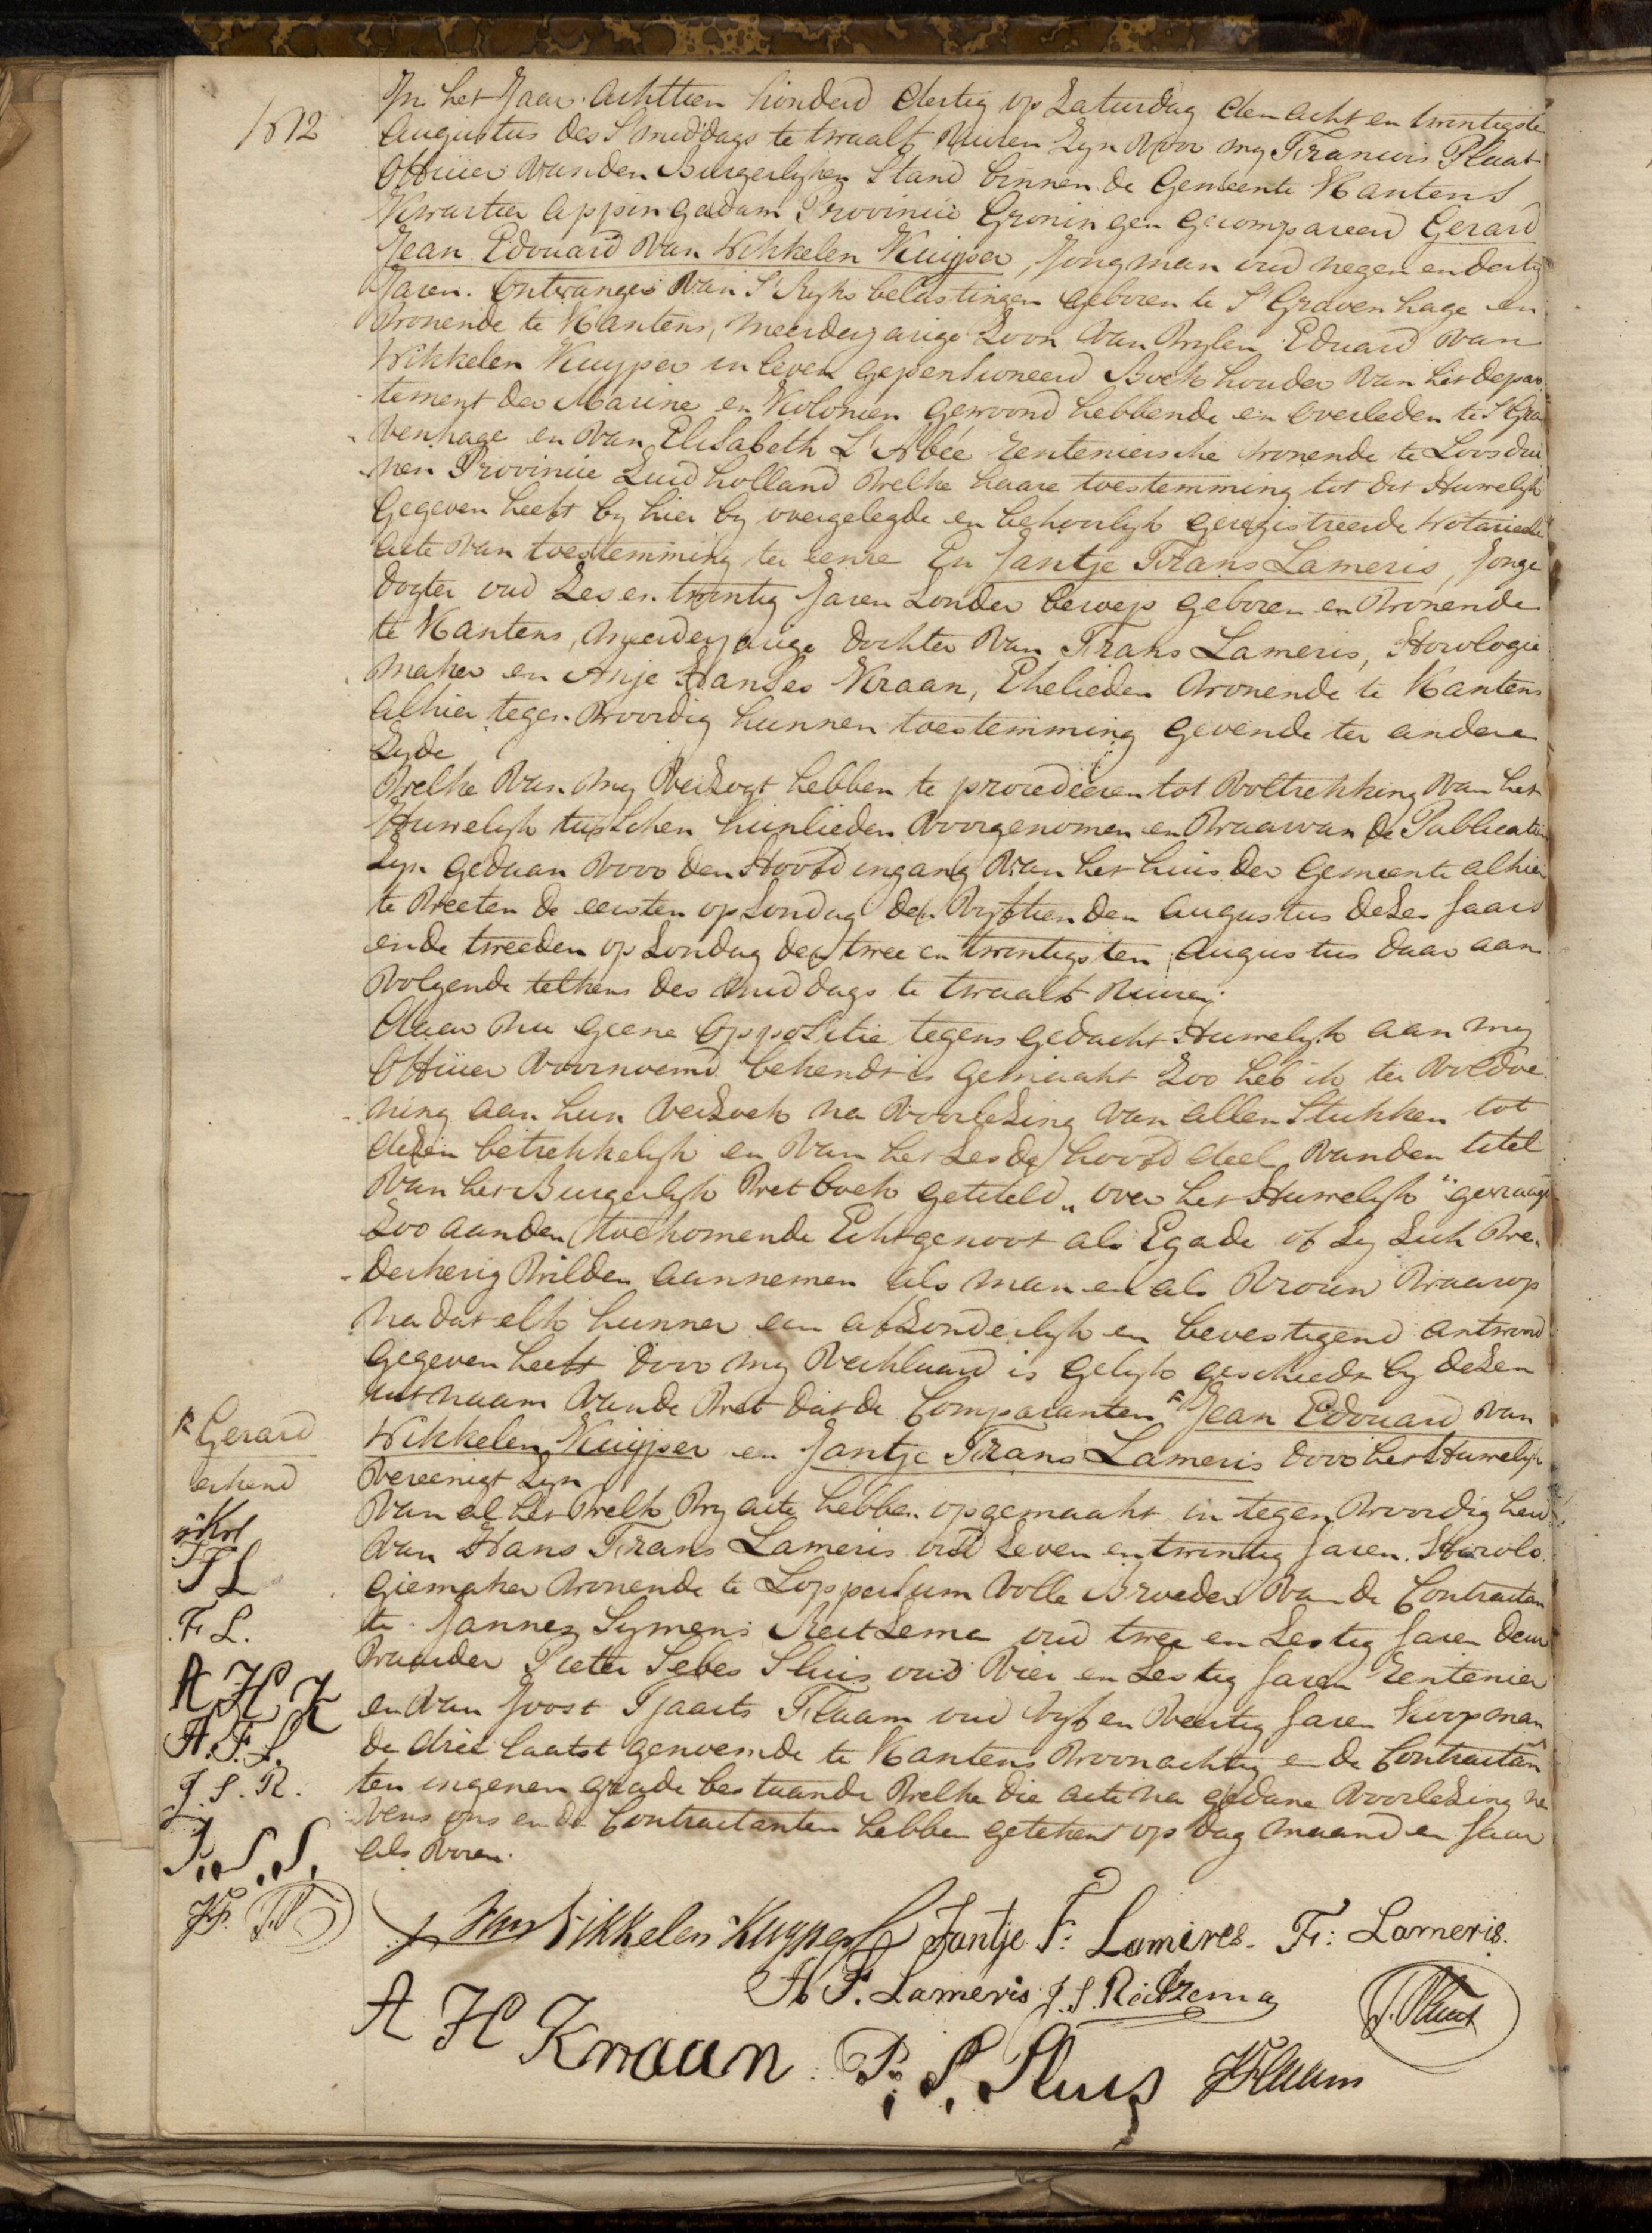 In het Jaar Achttien honderd dertig op Zaturdag den acht en twintigste
Augustus des S'middags te twaalf Uuren Zyn voor my Francois Plaat
Officier van den Burgerlyken Stand binnen de Gemeente Kantens
Kwartier Appingadam Provincie Groningen gecompareerd Gerard
Jean Edouard van Wikkelen Kuyper, Jongman oud negen en dertig
Jaren. Ontvanger van S'Ryks belastingen geboren te S'Gravenhage en
wonende te Kantens, meerderjarige Zoon van wylen Eduard van
Wikkelen Kuyper in leven gepensioneerd Boekhouder van het depar
tement der Marine en Kolonien gewoond hebbende en overleden te S'Gra
venhage en van Elisabeth L'Abee renteniersche wonende te Loosdui
nen Provincie Zuid holland welke haare toestemming tot dit Huwelyk
Gegeven heeft by hier by overgelegde en behoorlyk geregistreerde Notarieele
acte van toestemming ter eenre En Jantje Frans Lameris, Jonge
dogter oud Zes en twintig Jaren Zonder beroep geboren en wonende
te Kantens, meerderjarige dochter van Frans Lameris, Horologie
maker en Anje Hanses Kraan, Ehelieden wonende te Kantens
alhier tegenwoordig hunnen toestemming gevende ter andere
Zyde
Welke van my verzogt hebben te procedeeren tot voltrekking van het
Huwelyk tusschen hunlieden voorgenomen en waarvan de Publicatien
Zyn gedaan voor den Hoofd ingang van het huis der Gemeente alhier
te weeten de eersten op Zondag den vyftienden Augustus dezes Jaars
en de tweeden op Zondag den twee en twintigsten Augustus daar aan
volgende telkens des middags te twaalf Uuren.
Daar nu geene oppositie tegens gedacht Huwelyk aan my
Officier voornoemd bekendt is gemaakt Zoo heb ik ter voldoe
ning aan hun verzoek na voorlezing van allen Stukken tot
dezen betrekkelyk en van het Zesde hoofd deel van den titel
van het Burgerlyk Wetboek getiteld „over het Huwelyk" gevraagd
Zoo aan den toekomende Echtgenoot als Egade of Zy Zich We
derkerig Wilden aannemen als man en als Vrouw Waarop
na dat elk hunner een afzonderlyk en bevestigend antwoord
gegeven heeft door my verklaard is gelyk geschiedt by dezen
uit naam van de Wet dat de Comparanten Jean Edouard van
Wikkelen Kuyper en Jantje Frans Lameris door het Huwelyk
vereenigt Zyn
Van al het welk wy acte hebben opgemaakt in tegenwoordigheid
van Hans Frans Lameris oud Zeven en twintig Jaren. Horolo
giemaker wonende te Loppersum volle Broeder van de Contractan
te Jannes Symens Reitsema oud twee en Zestig Jaren deur
waarder Pieter Sebes Sluis oud vier en Zestig Jaren rentenier
en van Joost Tjaarts Flaam oud vyf en veertig Jaren Koopman
de drie laatst genoemde te Kantens woonachtig en de Contractan
ten in genen grade bestaande welke die acte na gedane voorlezing ne
vens ons en de Contractanten hebben getekent op dag maand en Jaar
als voren.
Gerard
erkend
F L
F. L.
A H K
H. F. L.
J. S. R.
P. S. S.
van Wikkelen Kuyper Jantje F: Lameres. Fr: Lameris.
H F. Lameris J. S. Reitzema
A H Kraan P. S. Sluis JFlaam F. Plaat